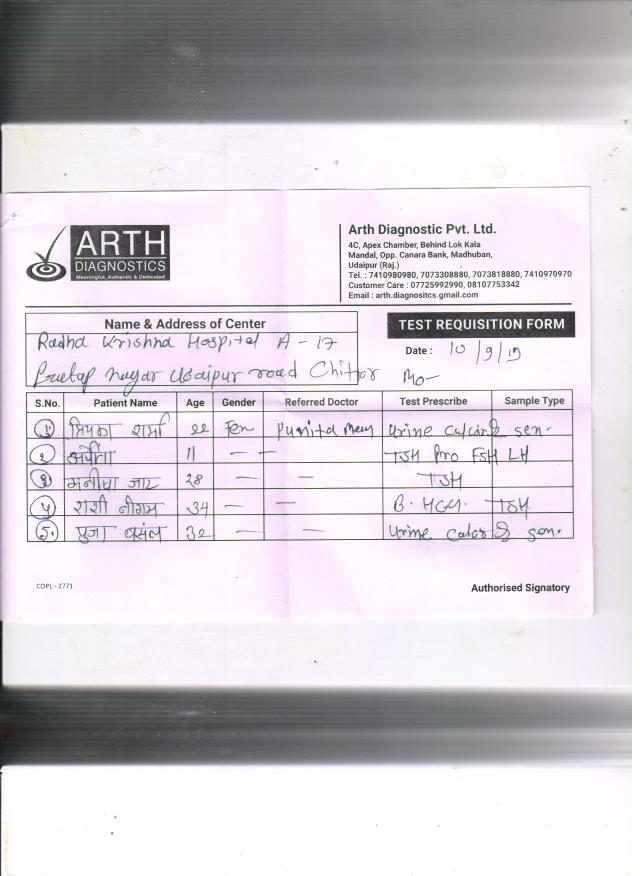 ARTH
DIAGNOSTICS
Meaningful, Authentic & Dedicated
Arth Diagnostic Pvt. Ltd.
4C, Apex Chamber, Behind Lok Kala
Mandal, Opp. Canara Bank, Madhuban,
Udaipur (Raj.)
Tel. : 7410980980, 7073308880, 7073818880, 7410970970
Customer Care : 07725992990, 08107753342
Email : arth.diagnositcs.gmail.com
Name & Address of Center
TEST REQUISITION FORM
Radha Krishna Hospital A - 17
Date : 10/9/19
Pratap nagar Udaipur road Chittor Mo-
S.No. Patient Name Age Gender Referred Doctor Test Prescribe Sample Type
1 प्रियंका शर्मा 22 Fem Punita Urine sen.
2 अर्पिता 11 — — TSH Pro FSH LH
3 मनीषा जाट 28 — — TSH
4 शशी नीगम 34 — — B. HCG. TSH
5. पुजा 32 — — Urine sen.
COPL - 2771
Authorised Signatory